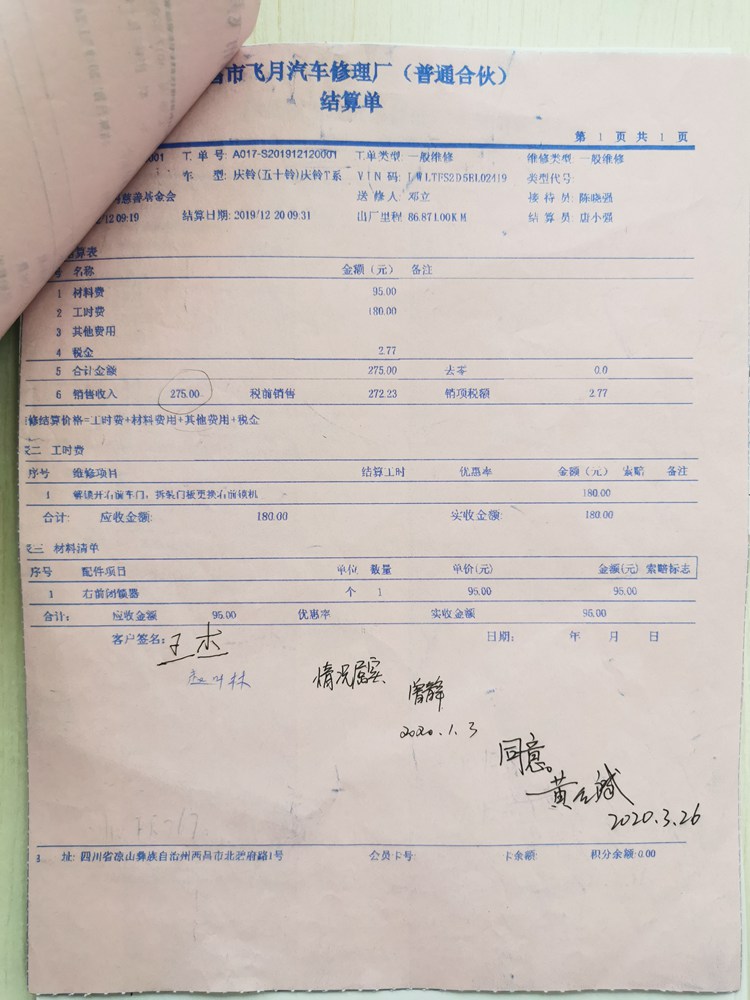 昌市飞月汽车修理厂（普通合伙）
结算单
第 1 页 共 1 页
001 工单号: A017-S201912120001 工单类型 一般维修 维修类型 一般维修
车 型: 庆铃(五十铃)庆铃T系 VIN 码: 类型代号:
慈善基金会 送修人: 邓立 接待员: 陈晓强
12 09:19 结算日期: 2019/12/20 09:31 出厂里程 86,871.00KM 结算员: 唐小强
算表
号 名称 金额（元） 备注
1 材料费 95.00
2 工时费 180.00
3 其他费用
4 税金 2.77
5 合计金额 275.00 去零 0.0
6 销售收入 275.00 税前销售 272.23 销项税额 2.77
修结算价格=工时费+材料费用+其他费用+税金
表二 工时费
序号 维修项目 结算工时 优惠率 金额（元） 索赔 备注
1 解锁开右前车门，拆装门板更换右前锁机 180.00
合计: 应收金额: 180.00 实收金额: 180.00
表三 材料清单
序号 配件项目 单位 数量 单价(元) 金额(元) 索赔标志
1 右前闭锁器 个 1 95.00 95.00
合计: 应收金额 95.00 优惠率 实收金额 95.00
客户签名: 王杰 日期: 年 月 日
情况属实 曾静
2020.1.3
同意。
黄
2020.3.26
址: 四川省凉山彝族自治州西昌市北碧府路1号 会员卡号: 卡余额: 积分余额:0.00